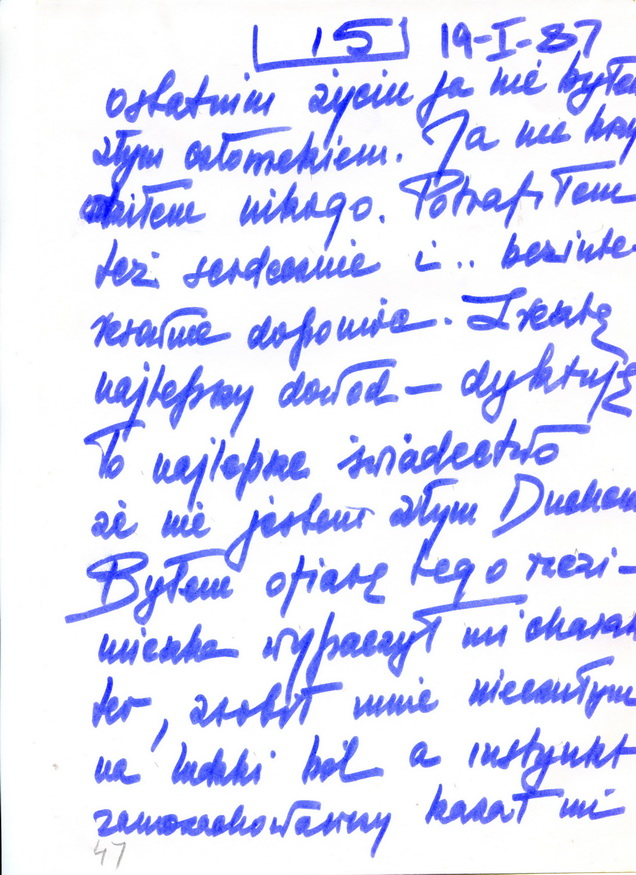 15 19-I-87
ostatnim życiu ja nie byłem
złym człowiekiem. Ja nie krzy
dziłem nikogo. Potrafiłem
też serdecznie i.. bezinte-
resownie dopomóc. Zresztą
najlepszy dowód — dyktuję
To najlepsze świadectwo
że nie jestem złym Duchem
Byłem ofiarą tego reżi-
mieszka wypaczył mi charak
ter, zrobił mnie nieczułym
na ludzki ból a instynkt
zamozachowawczy kazał mi
47